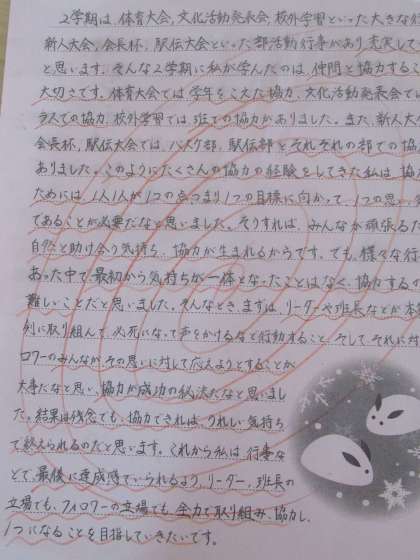 2学期は、体育大会、文化活動発表会、校外学習といった大きな行
新人大会、会長杯、駅伝大会といった部活動行事があり充実して
と思います。そんな2学期に私が学んだのは、仲間と協力するこ
大切さです。体育大会では、学年をこえた協力、文化活動発表会では
ラスでの協力、校外学習では、班での協力がありました。また、新人大
会長杯、駅伝大会では、バスケ部、駅伝部とそれぞれの部での協
ありました。このようにたくさんの協力の経験をしてきた私は、協
ためには、1人1人が1つの点つまり1つの目標に向かって、1つの思い
であることが必要だなと思いました。そうすれば、みんなが頑張るた
自然と助け合う気持ち、協力が生まれるからです。でも、様々な行
あった中で、最初から気持ちが一体となったことはなく、協力するの
難しいことだと思いました。そんなとき、まずは、リーダーや班長などが本
列に取り組んで、必死になって声をかけるなど行動すること、そして、それに対
ロワーのみんなが、その思いに対して応えようとすることが
大事だなと思い、協力が成功の秘訣だなと思いまし
た。結果は残念でも、協力できれば、うれしい気持ち
で終えられるのだと思います。これから私は、行事な
どで、最後に達成感でいられるよう、リーダー、班長の
立場でも、フォロワーの立場でも、全力で取り組み、協力し、
1つになることを目指していきたいです。